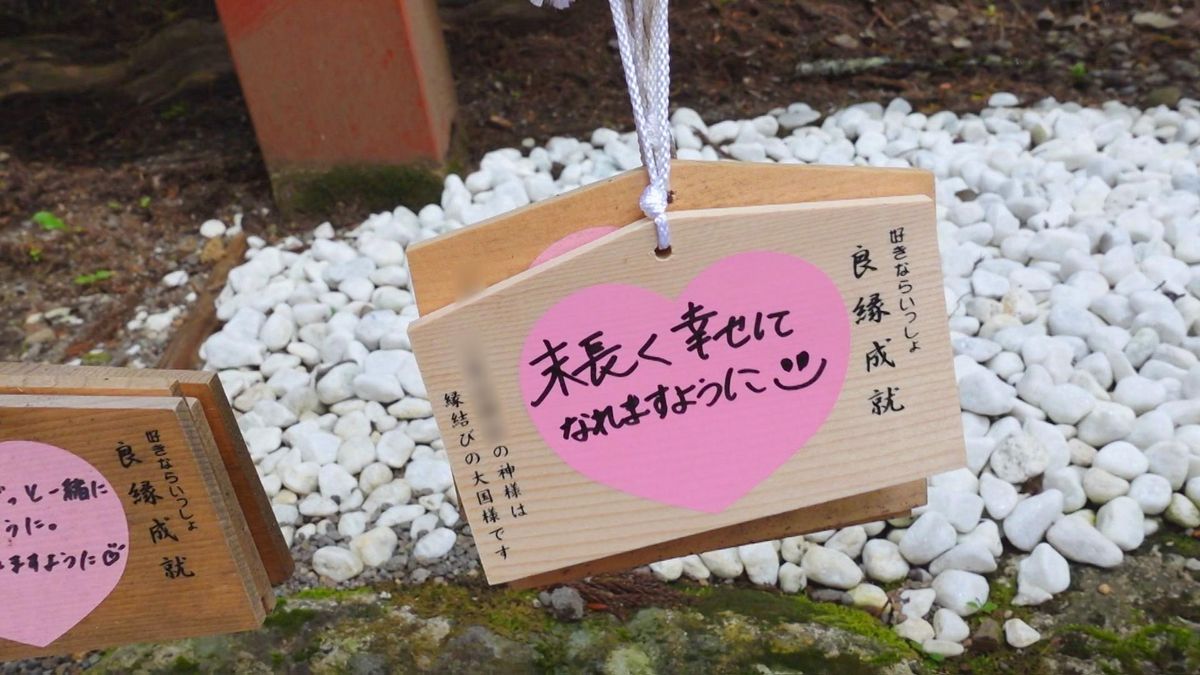 好きならいっしょ
良縁成就
末長く幸せに
なれますように
の神様は
縁結びの大国様です
好きならいっしょ
良縁成就
っと一緒に
うに。
ますように